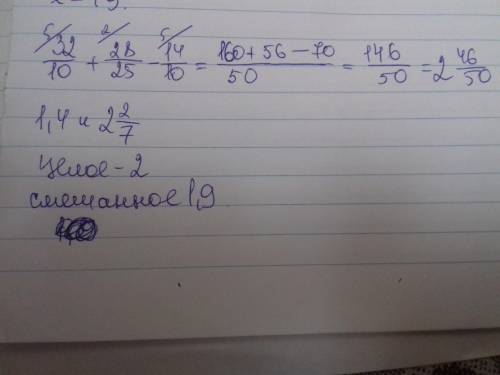 5/ 32/10 + 2/ 28/25 - 5/ 14/10 = 160+56-70/50 = 146/50 = 2 46/50
1,4 и 2 2/7
Целое - 2
смешанное 1,9